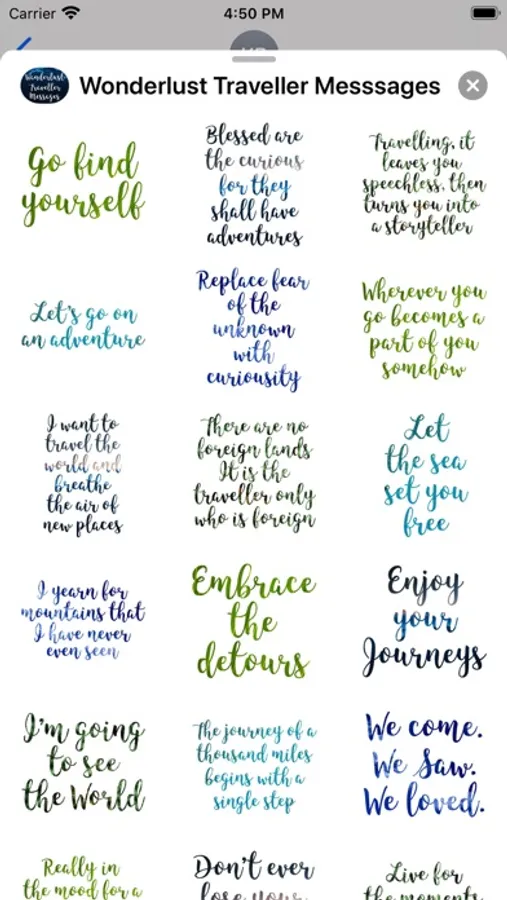 Carrier 4:50 PM
Wonderlust Traveller Messsages
Wonderlust
Traveller
Messages
Go find
yourself
Blessed are
the curious
for they
shall have
adventures
Travelling, it
leaves you
speechless, then
turns you into
a storyteller
Let's go on
an adventure
Replace fear
of the
unknown
with
curiousity
Wherever you
go becomes a
part of you
somehow
I want to
travel the
world and
breathe
the air of
new places
There are no
foreign lands
It is the
traveller only
who is foreign
Let
the sea
set you
free
I yearn for
mountains that
I have never
even seen
Embrace
the
detours
Enjoy
your
Journeys
I'm going
to see
the World
The journey of a
thousand miles
begins with a
single step
We come.
We Saw.
We loved.
Really in
the mood for a
Don't ever
lose your
Live for
the moments